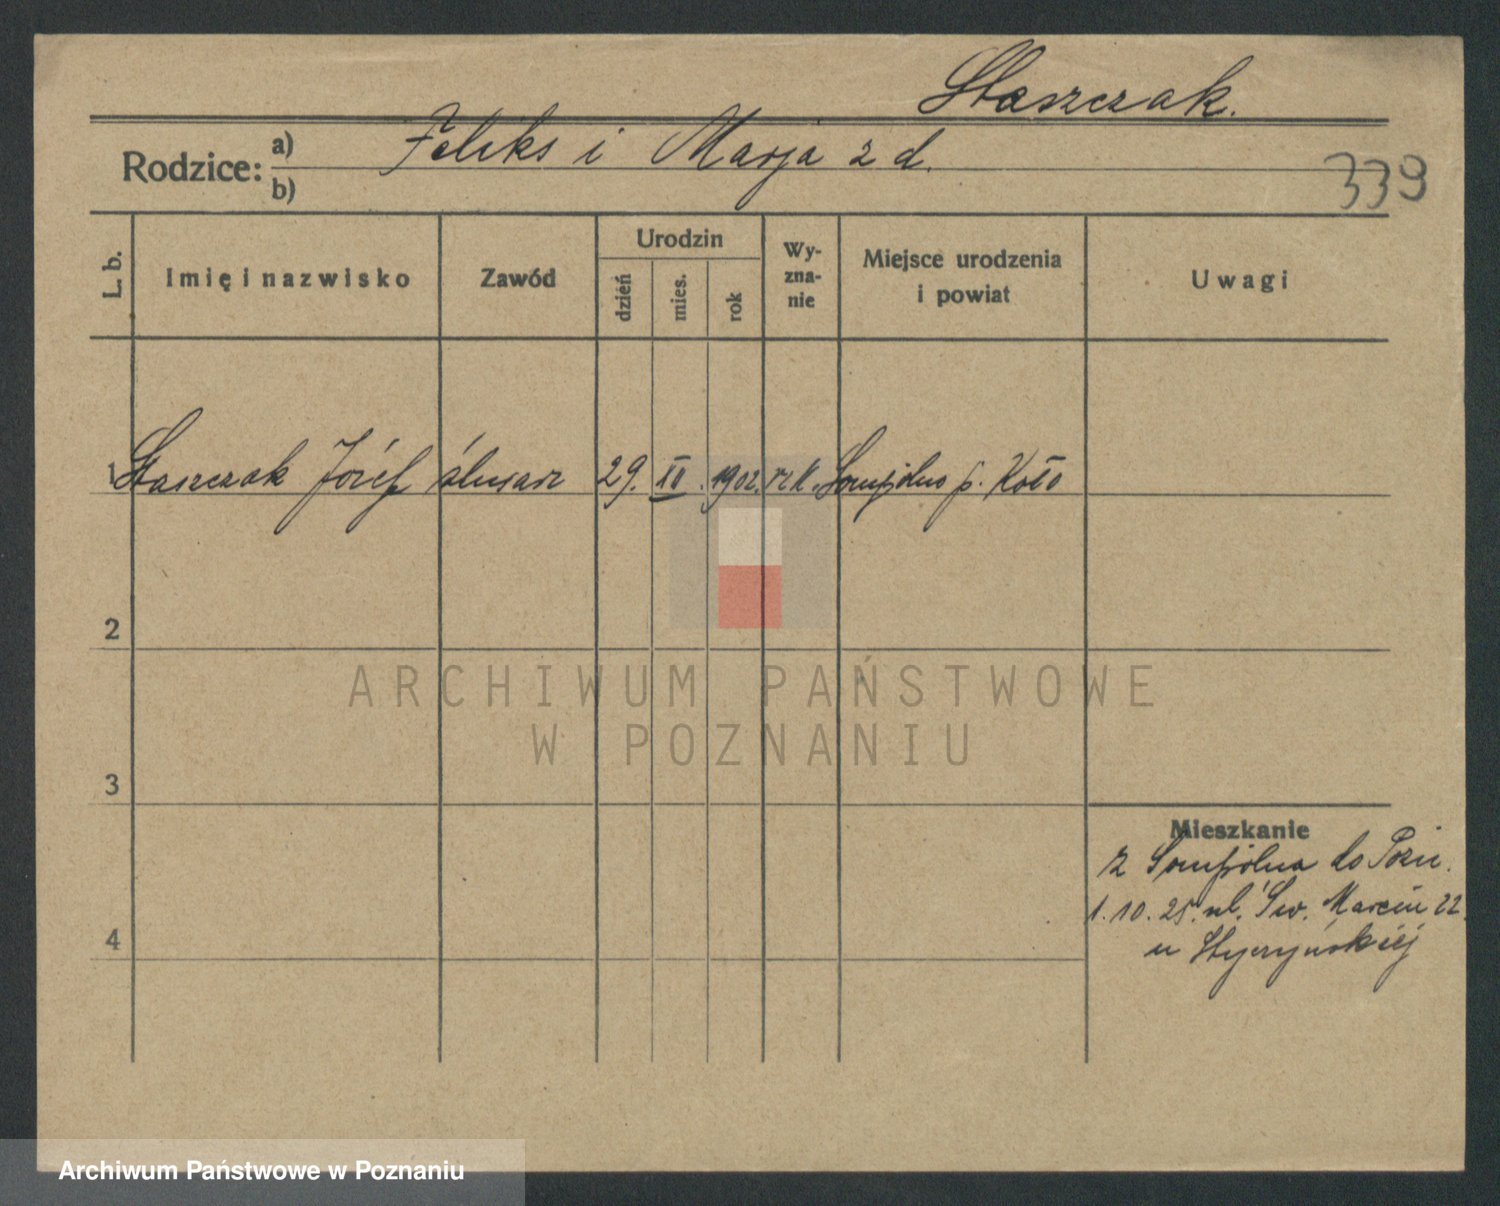 Staszczak.
Rodzice: a) Feliks i Marja z d.
b)
339
L. b.
Imię i nazwisko
Zawód
Urodzin
dzień
mies.
rok
Wy-
zna-
nie
Miejsce urodzenia
i powiat
Uwagi
1 Staszczak Józef ślusarz 29. XII. 1902. rzk. Sompólno p. Koło
2
3
4
Mieszkanie
z Sompólna do Pozn.
1.10.25. ul. Św. Marcin 22
u Styczyńskiej
ARCHIWUM PAŃSTWOWE
W POZNANIU
Archiwum Państwowe w Poznaniu